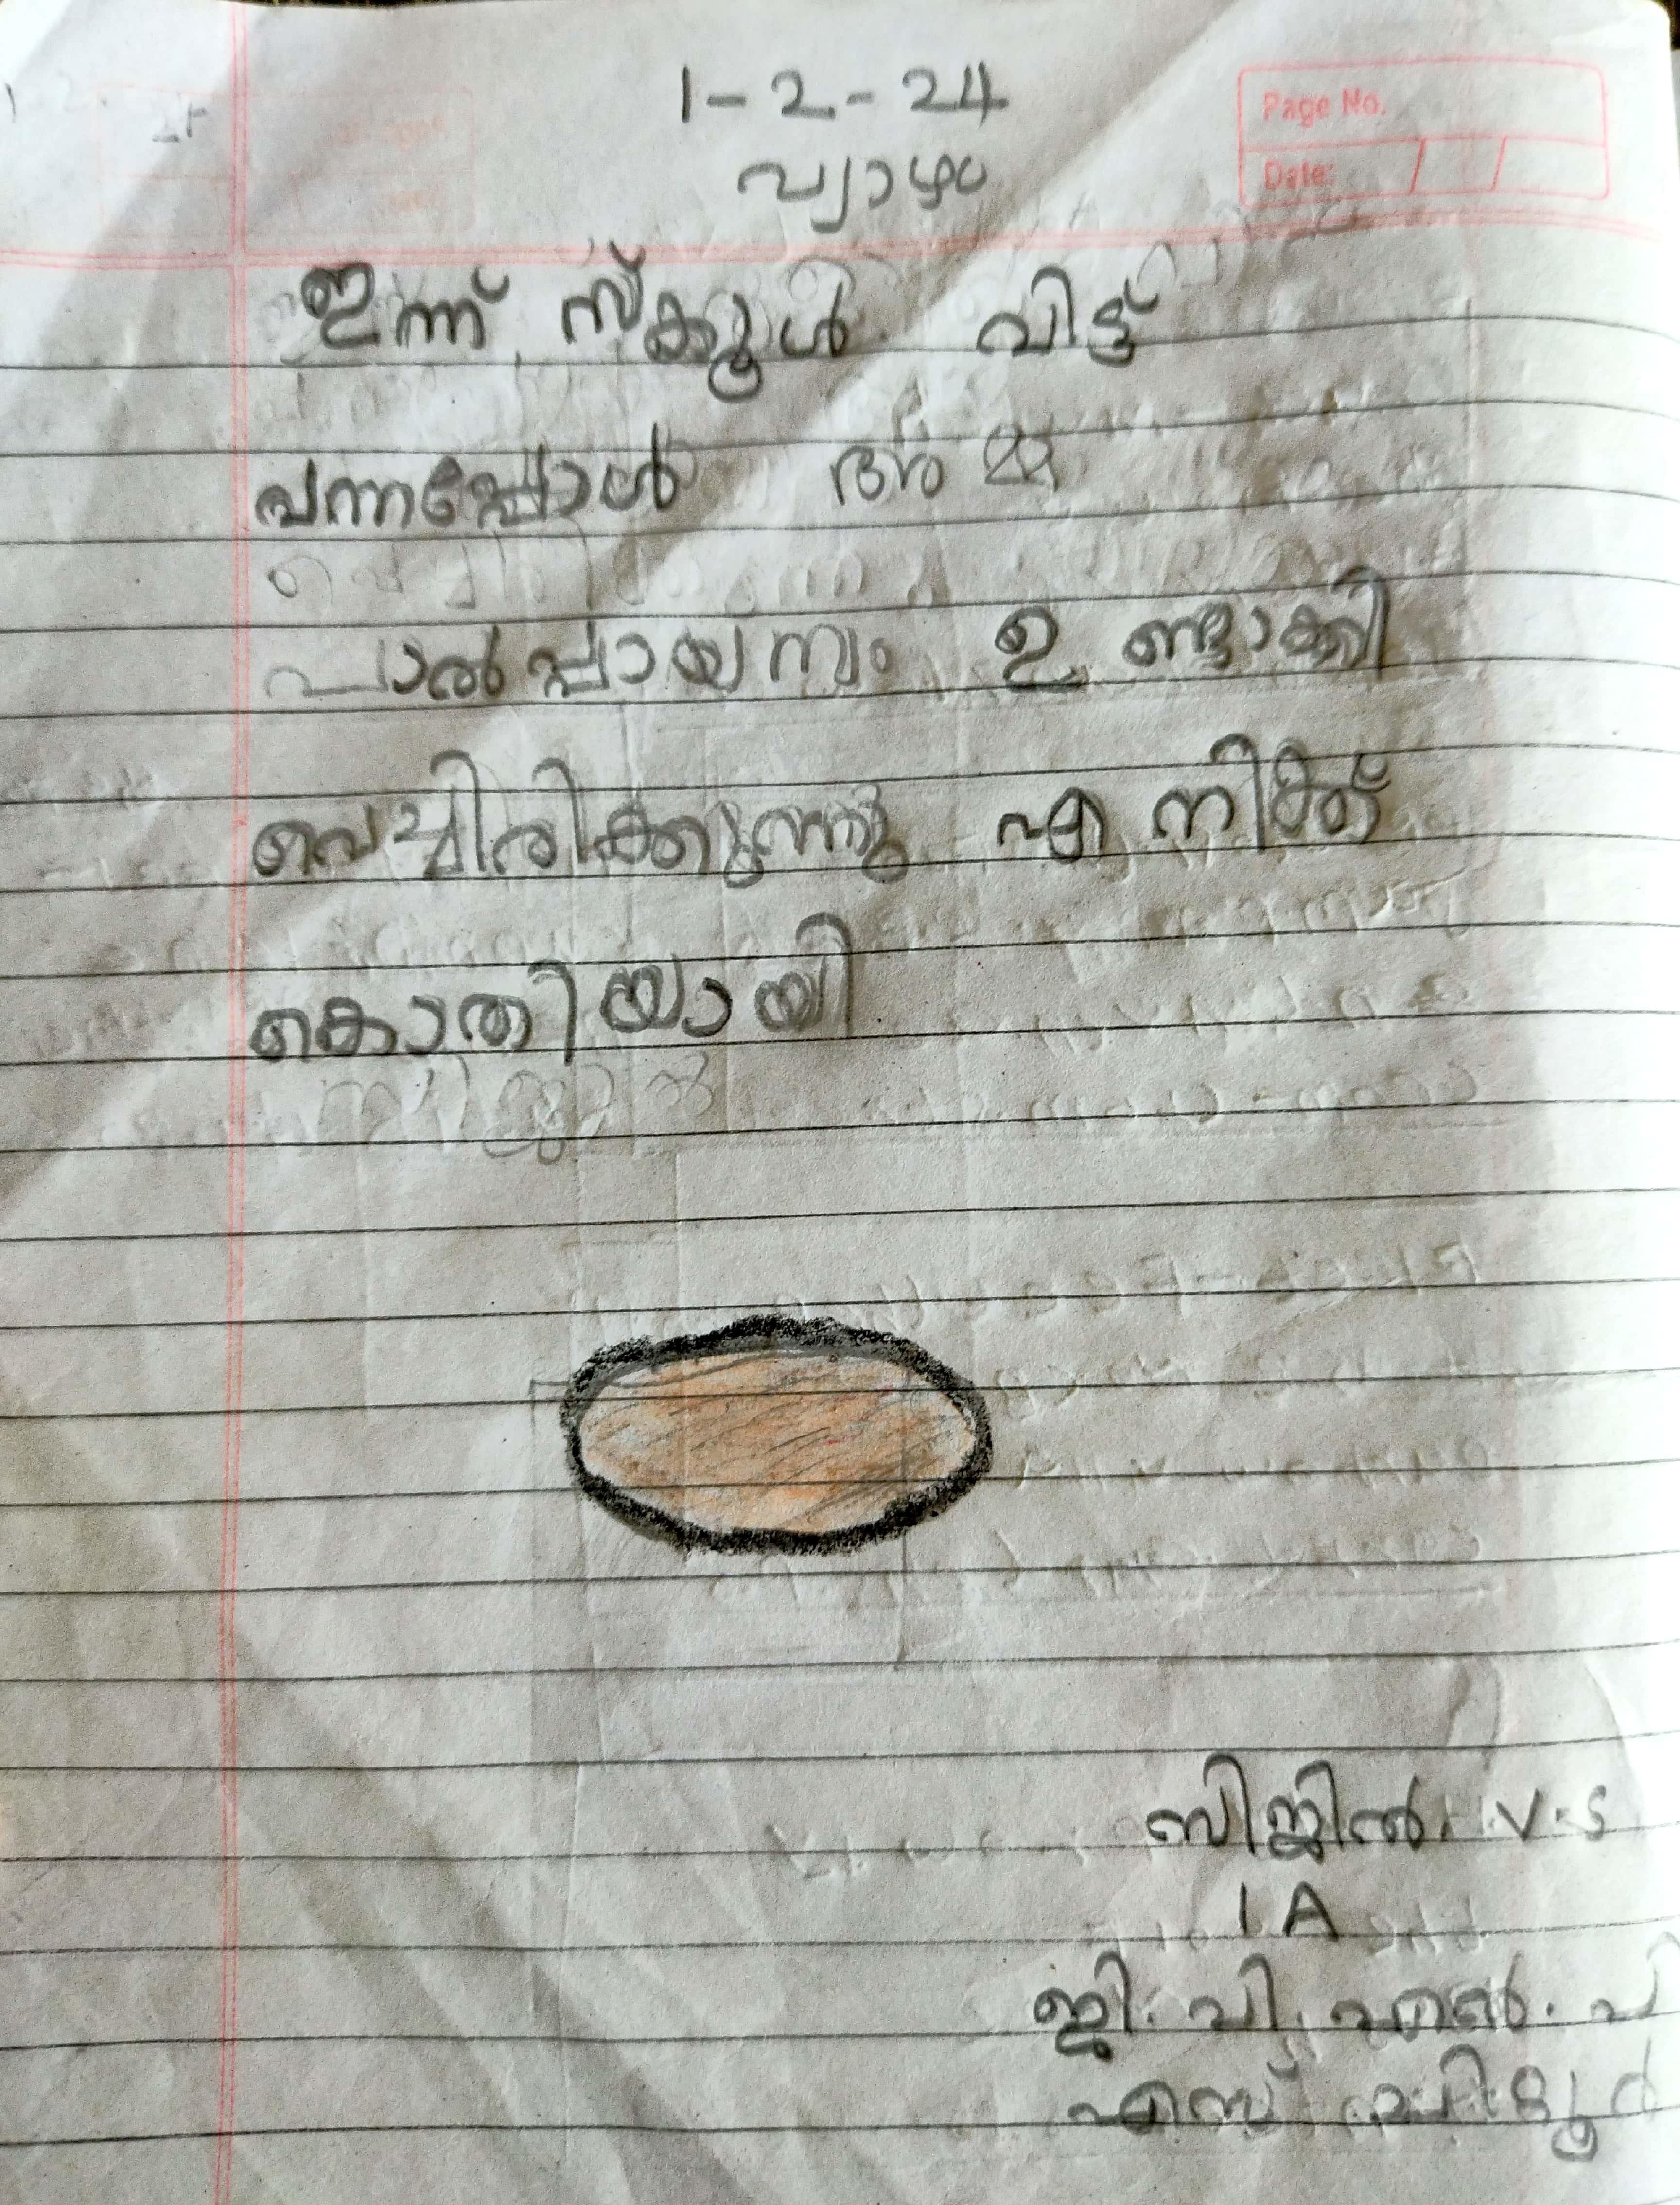 1-2-24
Page No.
വ്യാഴം
Date: / /
ഇന്ന് സ്ക്കൂൾ വിട്ട്
വന്നപ്പോൾ അമ്മ
പാൽപ്പായസം ഉണ്ടാക്കി
വെച്ചിരിക്കുന്നു എനിക്ക്
കൊതിയായി
സിജിൽ. V.S
1 A
ജി. വി. എൽ. പി
എസ്